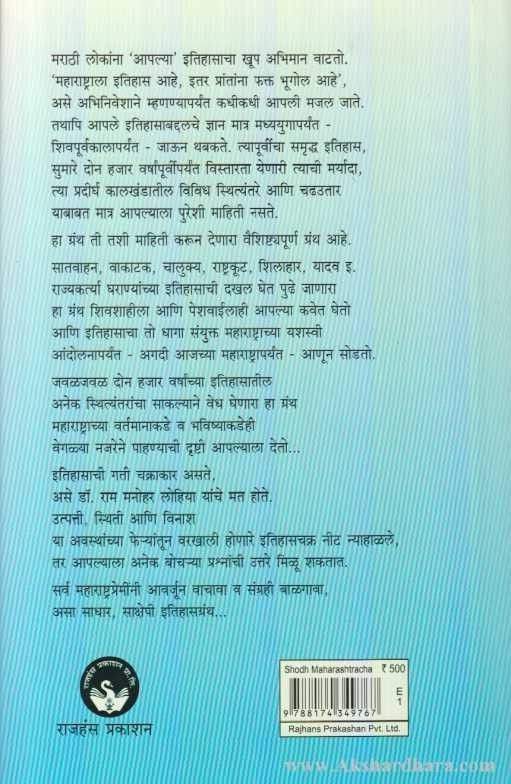 मराठी लोकांना 'आपल्या' इतिहासाचा खूप अभिमान वाटतो.
'महाराष्ट्राला इतिहास आहे, इतर प्रांतांना फक्त भूगोल आहे',
असे अभिनिवेशाने म्हणण्यापर्यंत कधीकधी आपली मजल जाते.
तथापि आपले इतिहासाबद्दलचे ज्ञान मात्र मध्ययुगापर्यंत -
शिवपूर्वकालापर्यंत - जाऊन थबकते. त्यापूर्वीचा समृद्ध इतिहास,
सुमारे दोन हजार वर्षांपूर्वीपर्यंत विस्तारता येणारी त्याची मर्यादा,
त्या प्रदीर्घ कालखंडातील विविध स्थित्यंतरे आणि चढउतार
याबाबत मात्र आपल्याला पुरेशी माहिती नसते.
हा ग्रंथ ती तशी माहिती करून देणारा वैशिष्ट्यपूर्ण ग्रंथ आहे.
सातवाहन, वाकाटक, चालुक्य, राष्ट्रकूट, शिलाहार, यादव इ.
राज्यकर्त्या घराण्यांच्या इतिहासाची दखल घेत पुढे जाणारा
हा ग्रंथ शिवशाहीला आणि पेशवाईलाही आपल्या कवेत घेतो
आणि इतिहासाचा तो धागा संयुक्त महाराष्ट्राच्या यशस्वी
आंदोलनापर्यंत - अगदी आजच्या महाराष्ट्रापर्यंत - आणून सोडतो.
जवळजवळ दोन हजार वर्षांच्या इतिहासातील
अनेक स्थित्यंतरांचा साकल्याने वेध घेणारा हा ग्रंथ
महाराष्ट्राच्या वर्तमानाकडे व भविष्याकडेही
वेगळ्या नजरेने पाहण्याची दृष्टी आपल्याला देतो...
इतिहासाची गती चक्राकार असते,
असे डॉ. राम मनोहर लोहिया यांचे मत होते.
उत्पत्ती, स्थिती आणि विनाश
या अवस्थांच्या फेऱ्यांतून वरखाली होणारे इतिहासचक्र नीट न्याहाळले,
तर आपल्याला अनेक बोचऱ्या प्रश्नांची उत्तरे मिळू शकतात.
सर्व महाराष्ट्रप्रेमींनी आवर्जून वाचावा व संग्रही बाळगावा,
असा साधार, साक्षेपी इतिहासग्रंथ...
राजहंस प्रकाशन प्रा. लि.
राजहंस प्रकाशन
Shodh Maharashtracha ₹ 500
E
1
9 788174 349767
Rajhans Prakashan Pvt. Ltd.
www.Akshardhara.com